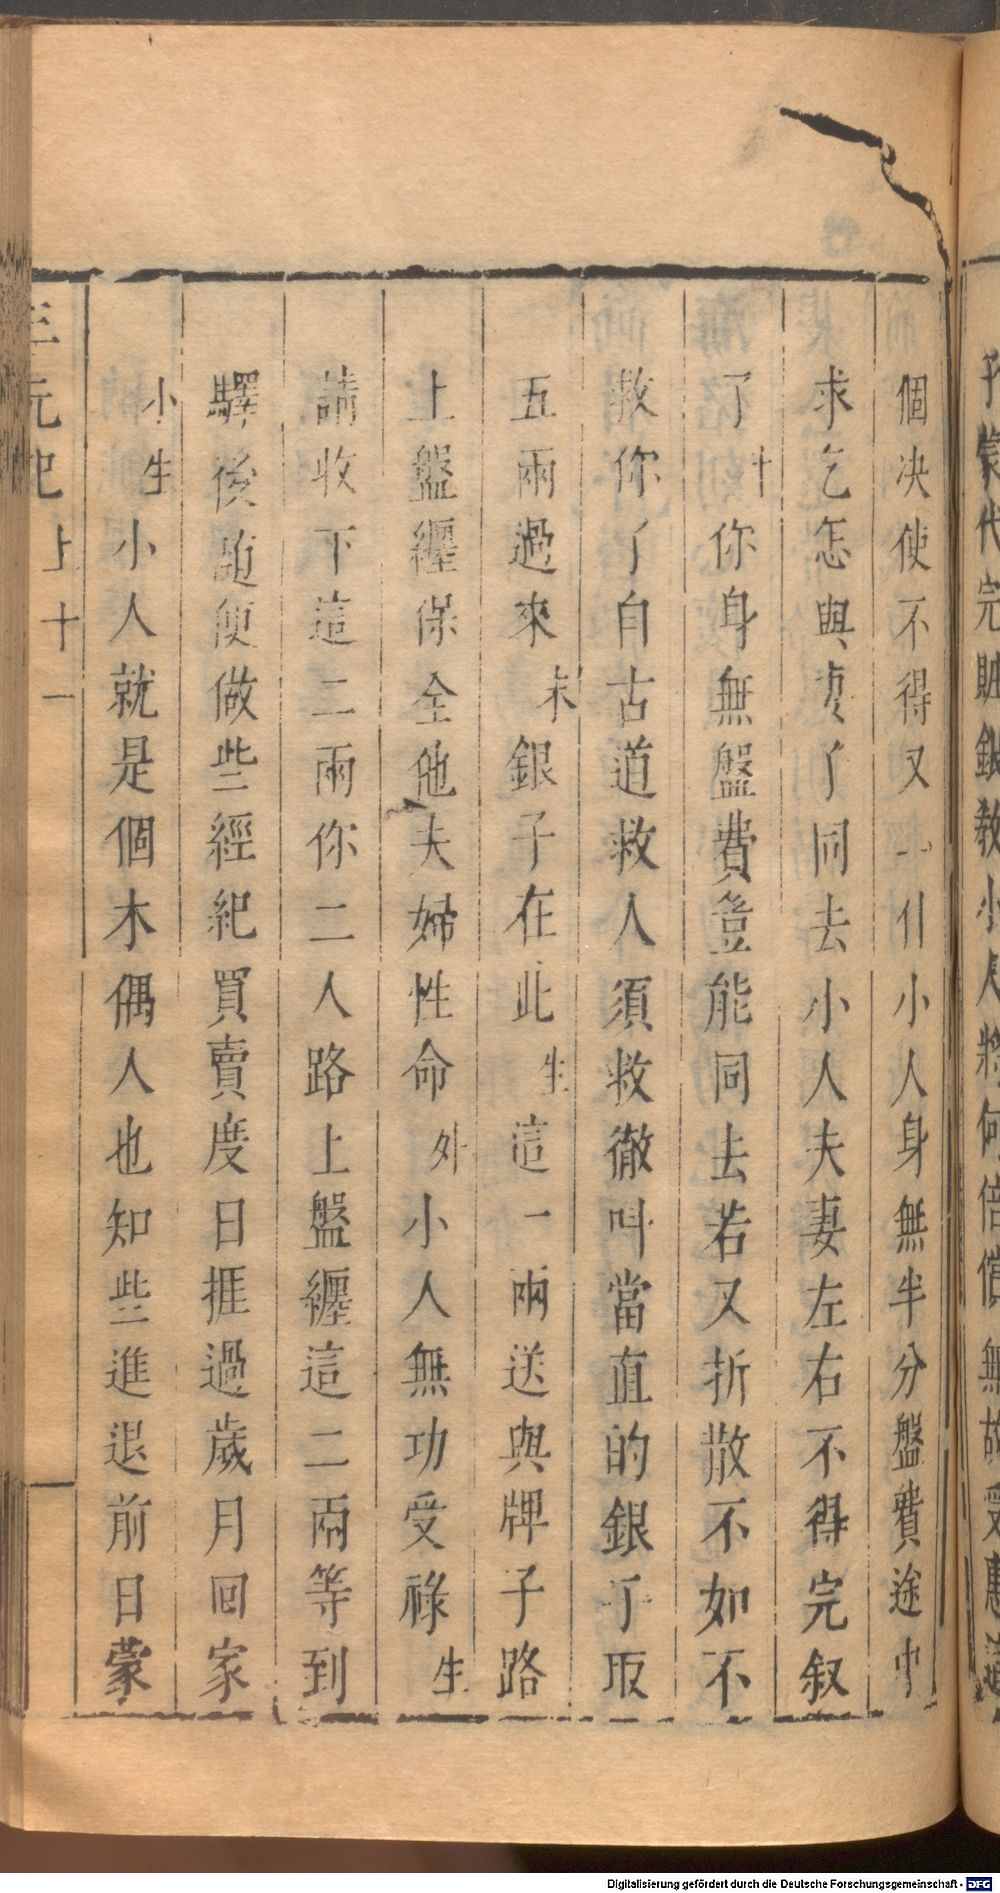 個决使不得又一什小人身無半分盤費途中
求乞怎與妻了同去小人夫妻左右不得完叙
了 你身無盤費豈能同去若又折散不如不
救你了自古道救人須救徹叫當直的銀子取
五兩過來末銀子在此生這一兩送與牌子路
上盤纏保全他夫婦性命外小人無功受祿生
請收下這二兩你二人路上盤纏這二兩等到
驛後 便做些經紀買賣度日捱過歲月回家
小生小人就是個木偶人也知些進退前日蒙
三元記 上 十一
子蒙代完賍銀教小人將何倍償無故受惠
Digitalisierung gefördert durch die Deutsche Forschungsgemeinschaft - DFG